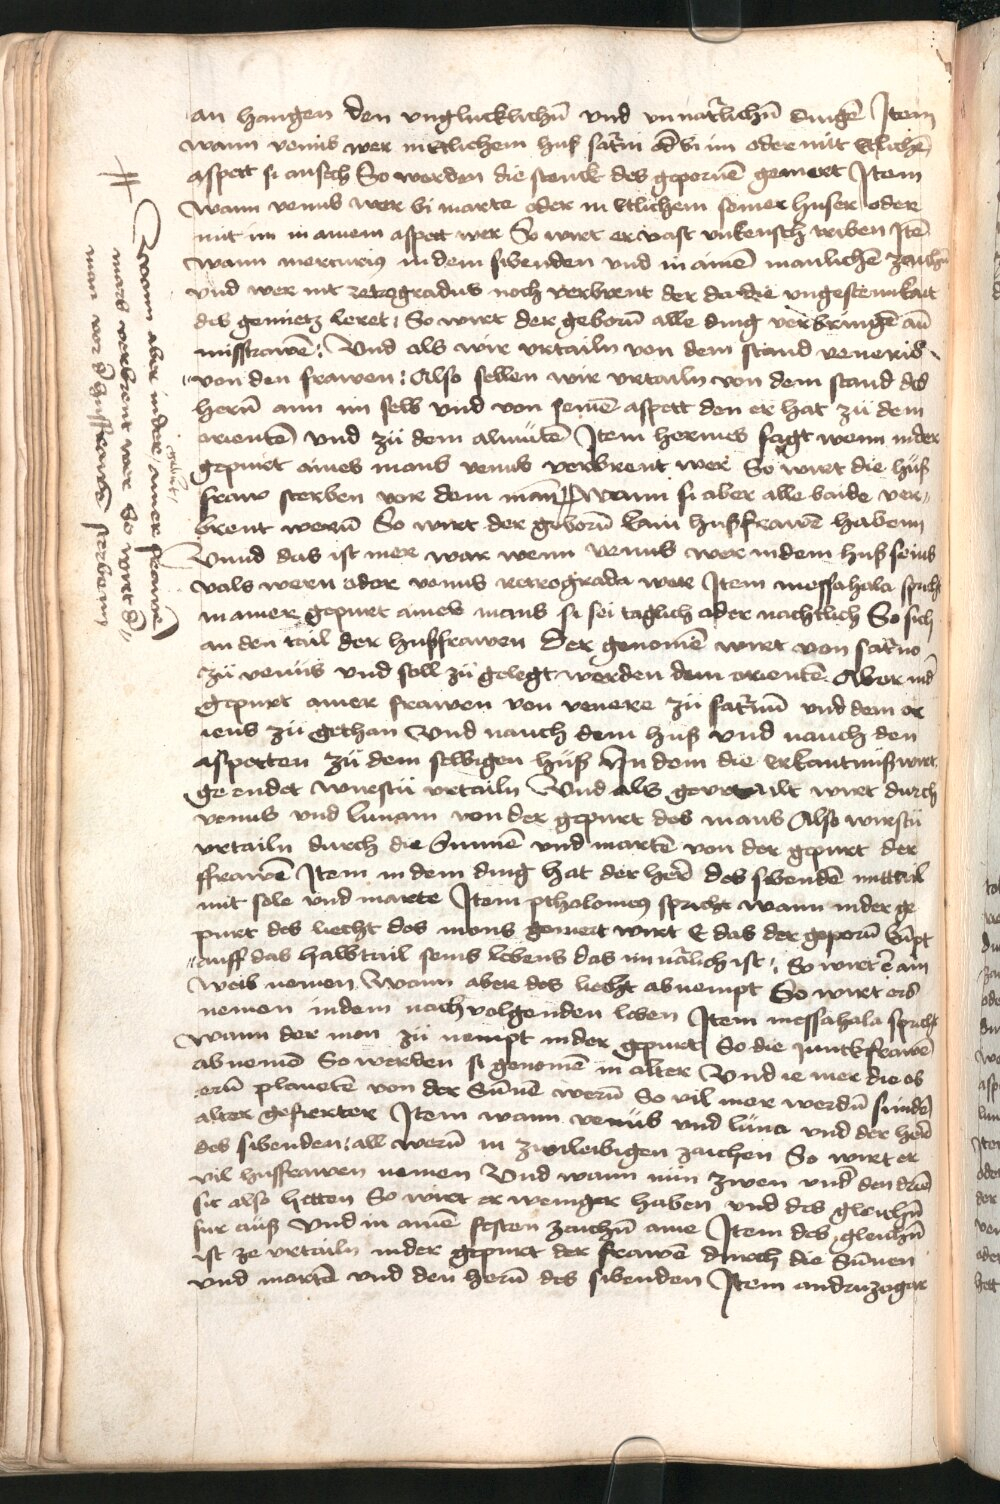 an hangen den vnglucklichn̄ vnd vnnatr̄lichn̄ dingē Item
wann venus wer in etlichem huß satr̄ni od' bi im oder mit etlichē
aspect si ansech So werden die stenck des gepornē gemert Item
wann venus wer bi marte oder in etlichem seiner huser oder
mit im in ainem aspect wer So wirt er vast vnkeusch triben Itē
wann mercurius in dem sibenden vnd in ainē manlichē zaichn̄
vnd wer nit retrogradus noch verbrent der da die vngestemikait
des gemietz leret: So wirt der geborn̄ alle ding verbringē an̄
misstrawē: Vnd als wir vrtailn von dem stand veneris
von den frawen: Also sellen wir vrtailn von dem stand des
hern̄ ann im selb vnd von seinē aspect den er hat zu dem
orientē vnd zu dem almutē Item hermes sagt wenn in der
gepurt aines mans venus verbrent wer So wirt die huß
fraw sterben vor dem man ⧧ wann si aber alle baide ver-
brent wern̄ So wirt der geborn̄ kain hußfrawē habenn
Vnnd das ist mer war wenn venus wer in dem huß seins
vals wern oder venus retrograda wer Item messahala spricht
in ainer gepurt aines mans si sei taglich oder nachtlich So sich
an den tail der hußfrawen Der genomē wirt von satr̄no
zu venus vnd soll zu gelegt werden dem orientē Aber in d'
gepurt ainer frawen von venere zu satr̄nū vnd dem or
iens zu gethan Vnd nauch dem huß vnd nauch den
aspecten zu dem selbigen huß In dem die erkantnuß wirt
geendet wurstu vrtailn Vnd als gevrtailt wirt durch
venus vnd lunam von der gepurt des mans Also wirstu
vrtailn durch die Sunnē vnd martē von der gepurt der
ffrawē Item in dem ding hat der her̄ des sibendē mittail
mit sole vnd marte Item ptholomeus spricht wann in der ge
purt des liecht des mons gemert wirt E das der geporn̄ kūpt
auff das halbtail seins lebens das im natr̄lich ist: So wirt e' ain
weib nemen Wann aber des liecht abnempt So wirt ers
nemen in dem nachvolgenden leben Item messahala spricht
wann der mon zu nempt in der gepurt So die junckfrawē
abnemē So werden si genomē in alter Vnd ie mer die ob
ern̄ planetē von der Sūnē wern̄ So vil mer werdn̄ si in dē
alter gefierter Item wann venus vnd luna vnd der her̄
des sibenden: all wern̄ in zwileibigen zaichen So wirt er
vil hussfrawen nemen Vnd wann nun zwen vnd' den drien
sit also hetten So wirt er weniger haben vnd des gleichn̄
fur auß Vnd in ainē festen zaichn̄ aine Item des gleichn̄
ist ze vrtailn in der gepurt der frawē durch die Sūnen
vnd martē vnd den hern̄ des sibenden Item andruzagar
⧧
Wenn aber in der ainer frawen
geburt
mars verbrent wer So wirt d'
man vor d' hussfrawē sterbenn